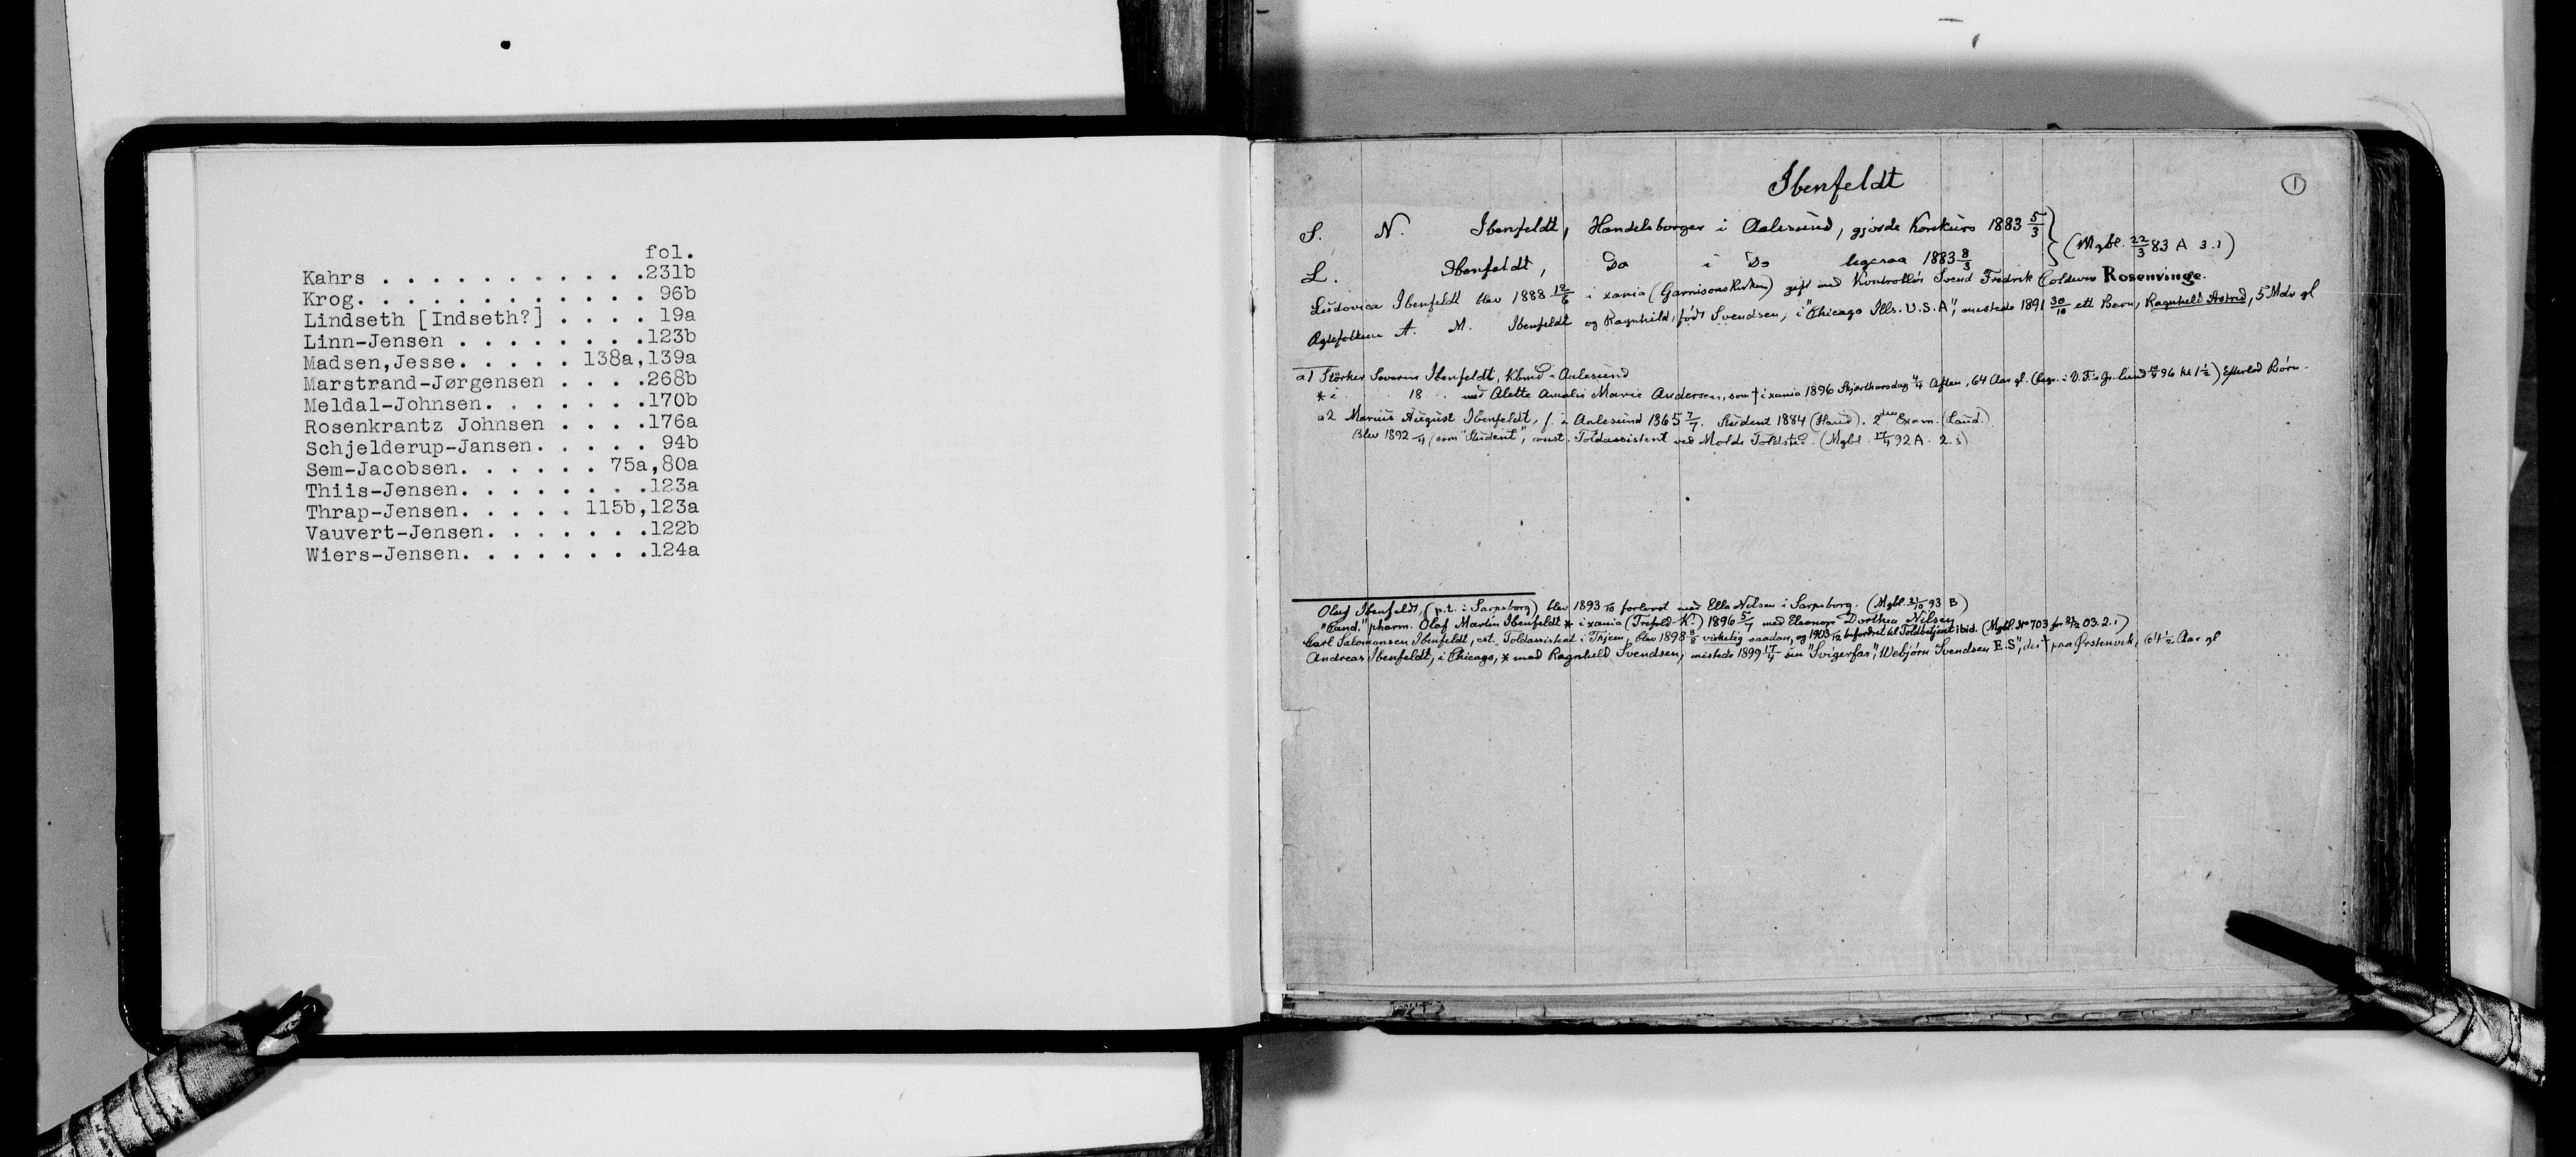 fol.
Kahrs . . . . . . . . . . . .231b
Krog. . . . . . . . . . . . . 96b
Lindseth [Indseth?] . . . . 19a
Linn-Jensen . . . . . . . . .123b
Madsen,Jesse. . . . . 138a,139a
Marstrand-Jørgensen . . . .268b
Meldal-Johnsen. . . . . . .170b
Rosenkrantz Johnsen . . . .176a
Schjelderup-Jansen. . . . . 94b
Sem-Jacobsen. . . . . . 75a,80a
Thiis-Jensen. . . . . . . .123a
Thrap-Jensen. . . . . 115b,123a
Vauvert-Jensen. . . . . . .122b
Wiers-Jensen. . . . . . . .124a
Ibenfeldt
1
S. N. Ibenfeldt, Handelsborger i Aalesund, gjorde Konkurs 1883 5/3
L. Ibenfeldt, Do i Do ligesaa 1883 8/3
(Mgbl. 22/3 83 A 3.1)
Ludovica Ibenfeldt blev 1888 12/6 i xania (Garnisonskirken) gift med Kontrollør Svend Fredrik Rosenvinge.
Ægtefolkene A. M. Ibenfeldt og Ragnhild, født Svendsen, i "Chicago Ills. U.S.A", mistede 1891 30/10 ett Barn, Ragnhild Astrid, 5 Mdr gl
a1 Størker Severin Ibenfeldt, Kbmd i Aalesund
* i 18 med Alette Amalie Marie Andersen, som † i xania 1896 Skjærthorsdag Aften, 64 Aar gl. Efterlod Børn.
a2 Marius August Ibenfeldt, f. i Aalesund 1865 7/7. Student 1884 (Haud). 2den Exam. (Laud.)
Blev 1892 (som "Student", const. Toldassistent ved Molde Toldsted. (Mgbl. 92 A. 2.3)
Oluf Ibenfeldt, (p.t. i Sarpsborg) blev 1893 forlovet med Ella Nilsen i Sarpsborg. (Mgbl. 93 B)
"Cand." pharm. Olaf Martin Ibenfeldt * i xania (Trefold-K.) 1896 5/7 med Eleonore Dorthea Nilsen
Carl Salomonsen Ibenfeldt, cst. Toldassistent i Thjem, blev 1898 virkelig saadan, og 1903 befordret til Toldbetjent ibid. (Mgbl. No 703 for 03. 2.1)
Andreas Ibenfeldt, i Chicago, * med Ragnhild Svendsen, mistede 1899 17/4 sin "Svigerfar", Webjørn Svendsen E.S", der † paa Ørstenvik, 64 1/2 Aar gl